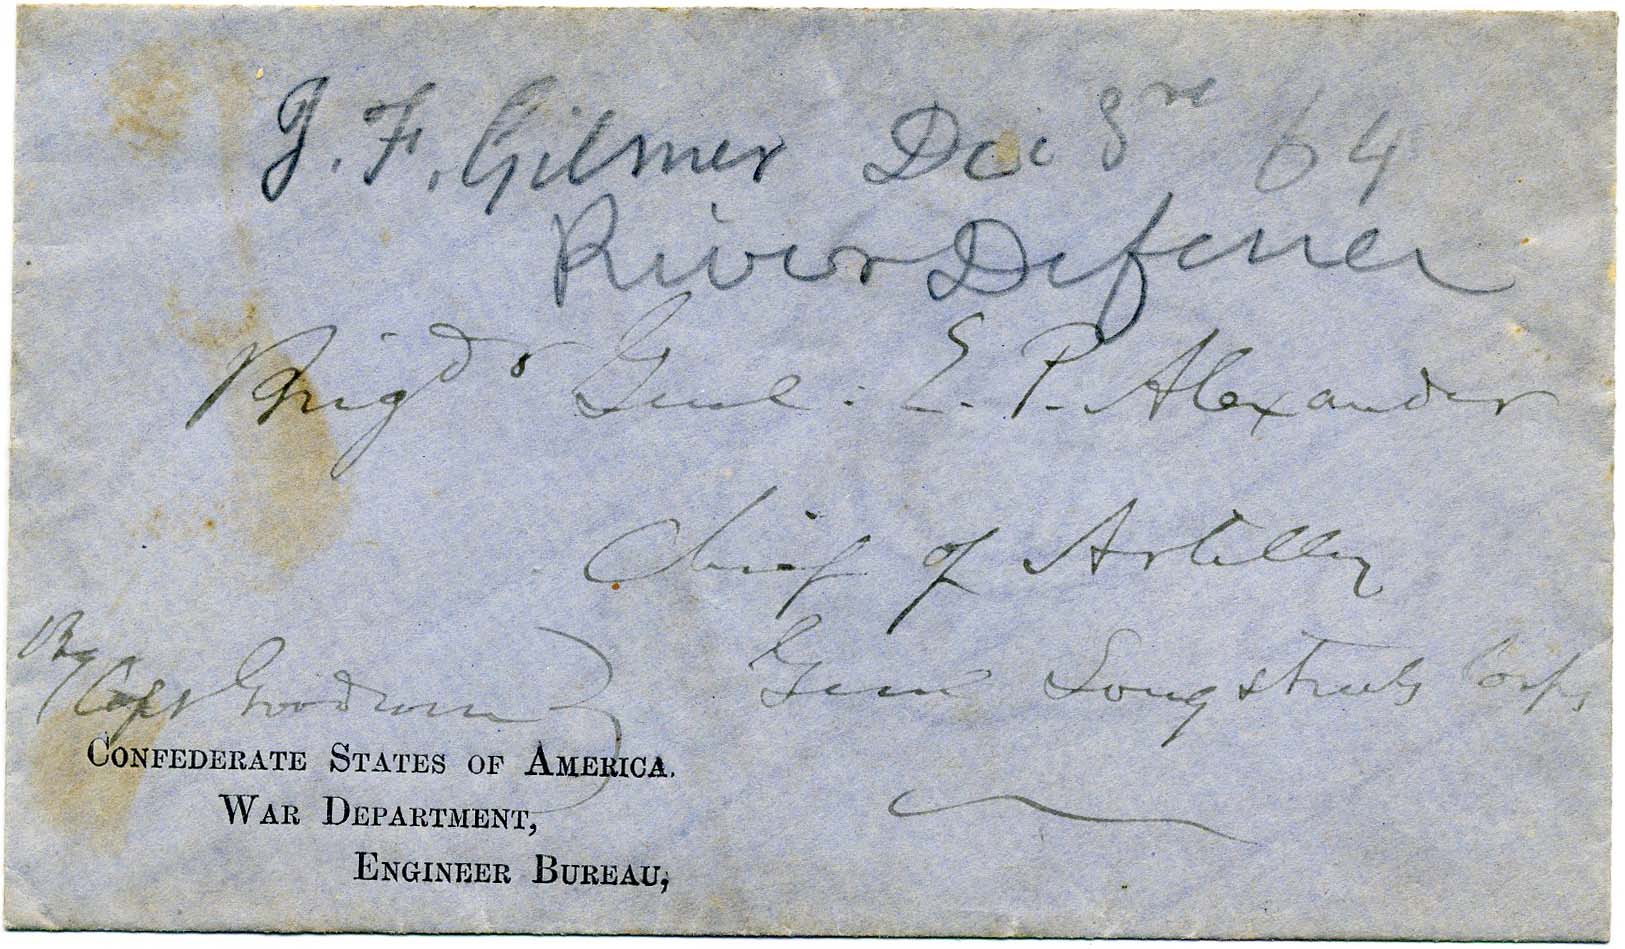 J. F. Gilmer Dec 3rd 64
River Defence
Brigdr Genl: E. P. Alexander
Chief of Artillery
Genl Longstreets Corps,
By
Capt Goodwin
Confederate States of America.
War Department,
Engineer Bureau,